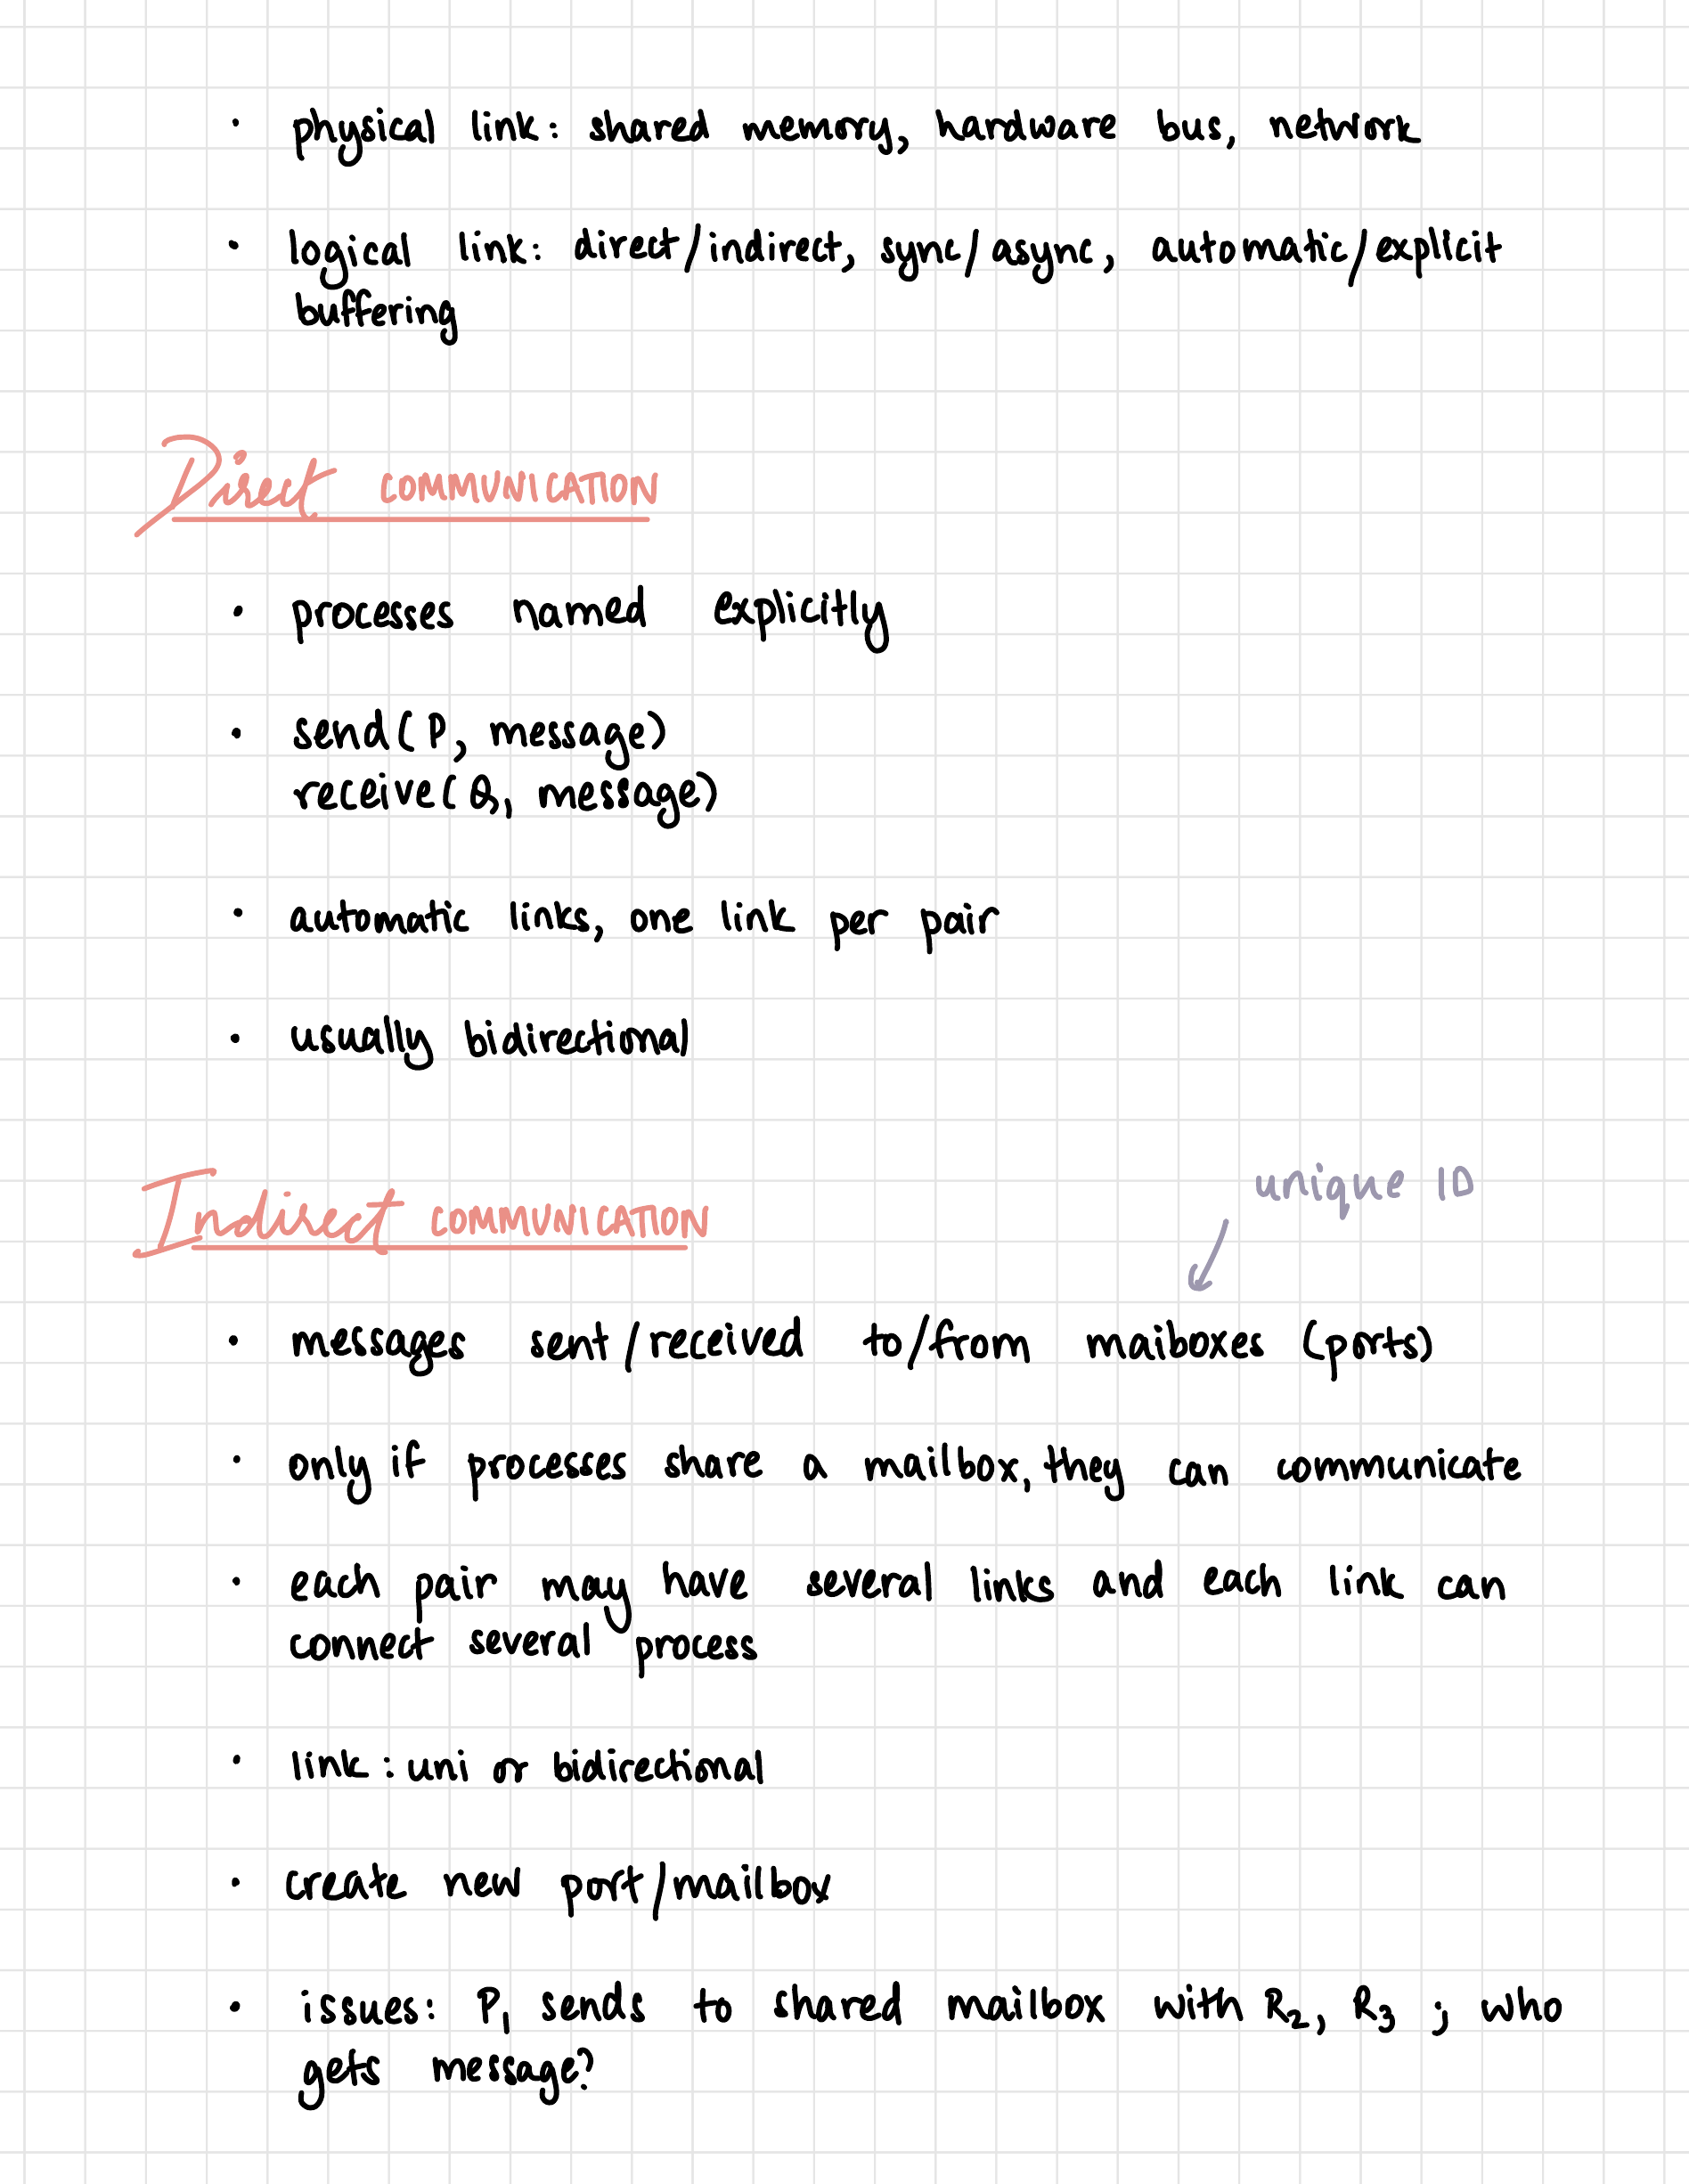 • physical link: shared memory, hardware bus, network
• logical link: direct/indirect, sync/async, automatic/explicit
buffering
Direct COMMUNICATION
• processes named explicitly
• send(P, message)
receive(Q, message)
• automatic links, one link per pair
• usually bidirectional
unique ID
Indirect COMMUNICATION
• messages sent/received to/from maiboxes (ports)
• only if processes share a mailbox, they can communicate
• each pair may have several links and each link can
connect several process
• link: uni or bidirectional
• create new port/mailbox
• issues: P₁ sends to shared mailbox with R₂, R₃ ; who
gets message?